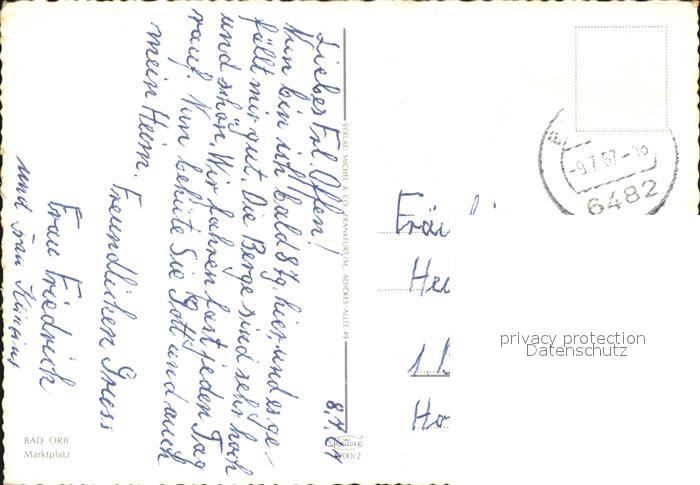 Liebes Frl. Offen!
Nun bin ich bald 8 Tg. hier und es ge-
fällt mir gut. Die Berge sind sehr hoch
und schön. Wir fahren fast jeden Tag
rauf. Nun behüte Sie Gott und auch
mein Heim.
Freundlichen Gruss
Frau Friedrich
und Frau
8.7.67
VERLAG MICHEL & CO., FRANKFURT/M., ADICKES-ALLEE 49
KRÜGER
00/2
BAD ORB
Marktplatz
-9.7.67-10
6482
Fräu
He
1 B
Ho
privacy protection
Datenschutz